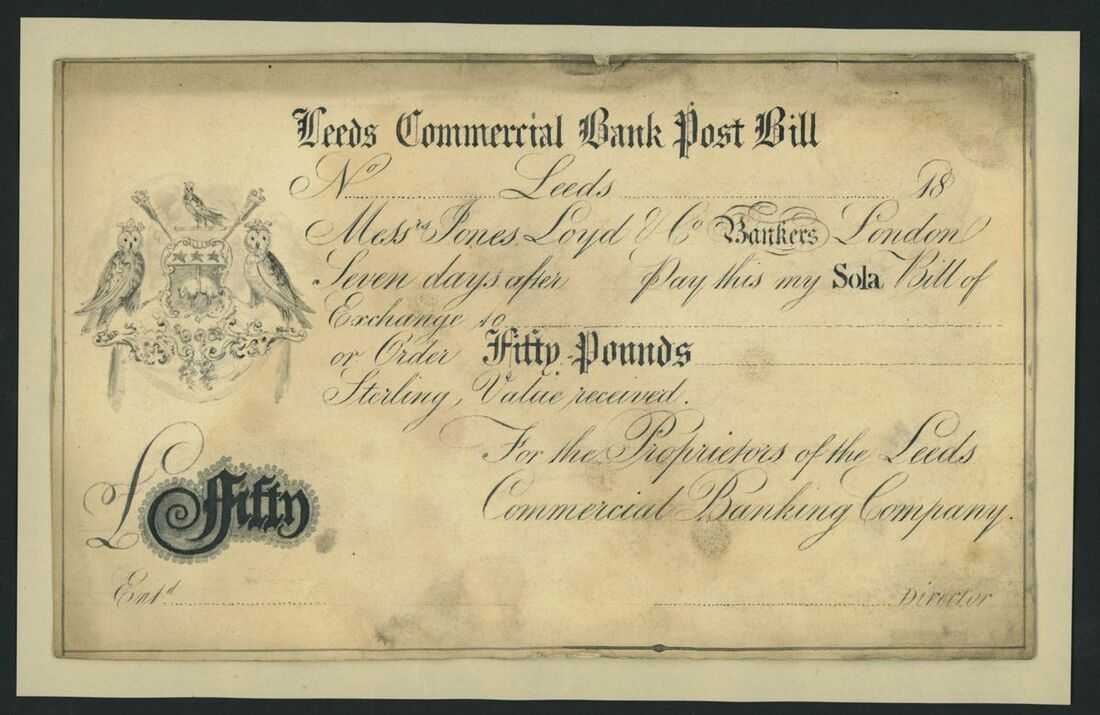 Leeds Commercial Bank Post Bill
No Leeds 18
Messrs Jones, Loyd & Co Bankers London
Seven days after Pay this my Sola Bill of
Exchange to
or Order Fifty Pounds
Sterling, Value received.
For the Proprietors of the Leeds
Commercial Banking Company.
£ Fifty
Entd Director